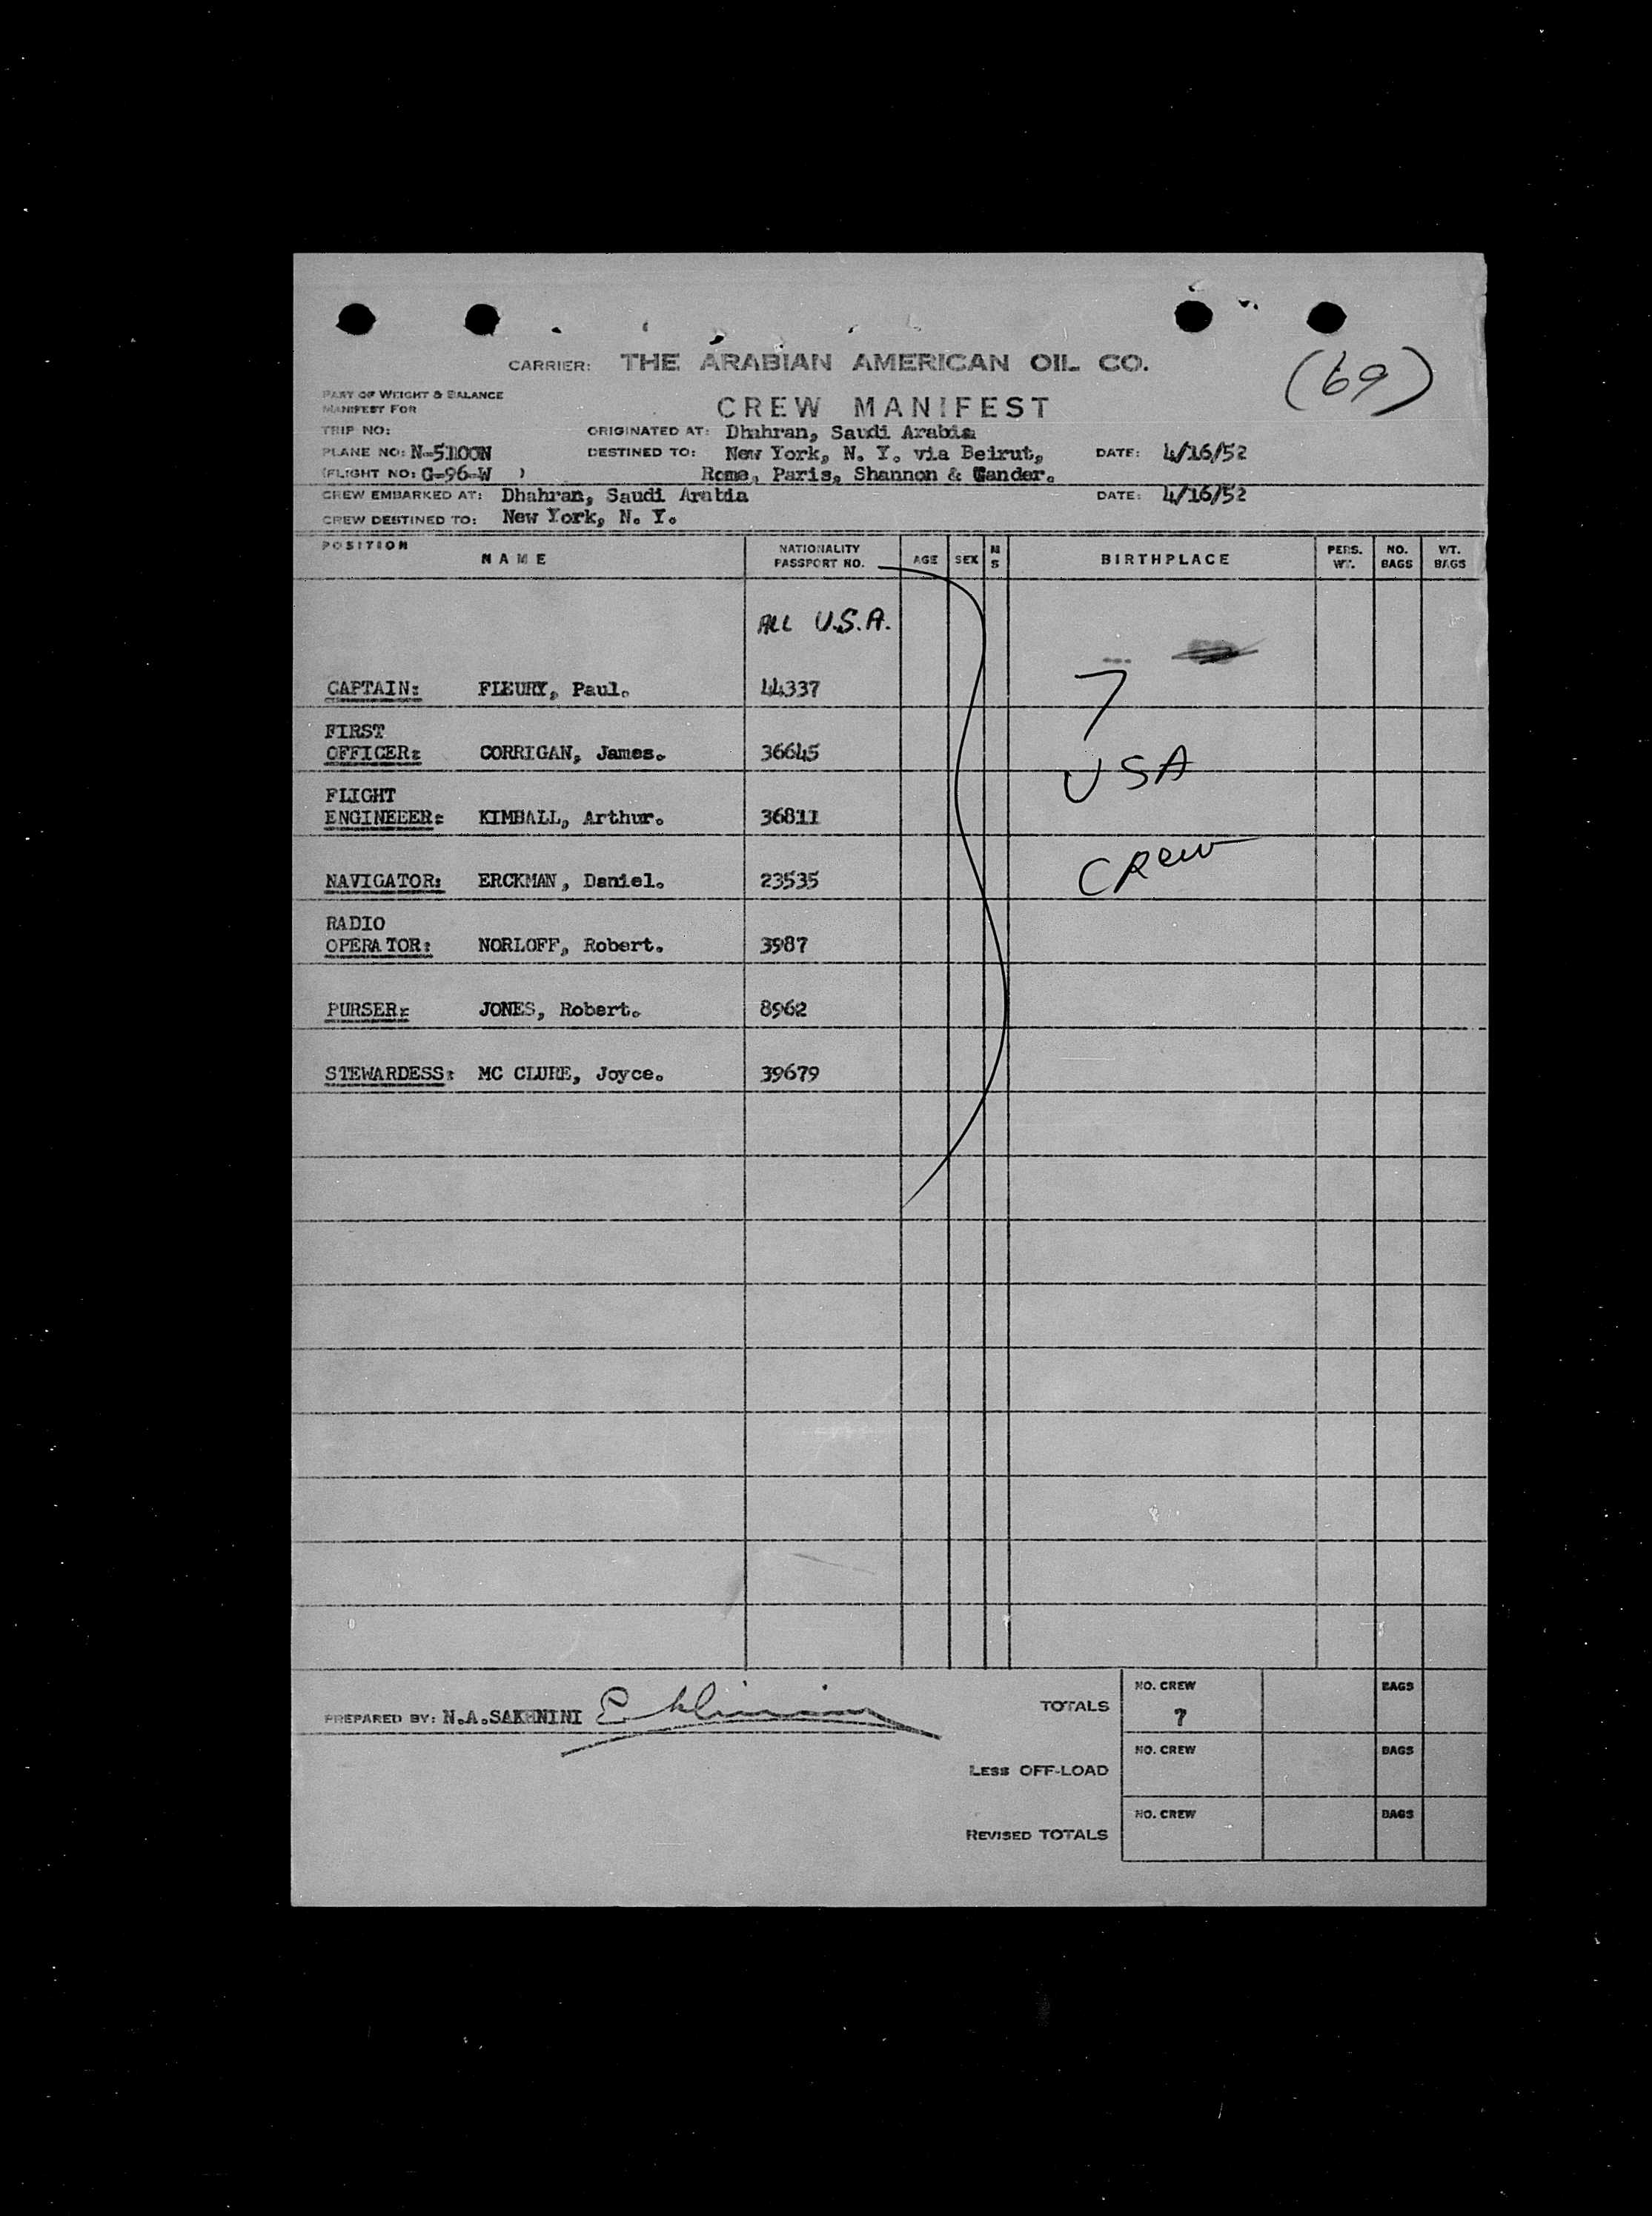 CARRIER: THE ARABIAN AMERICAN OIL CO.
(69)
PART OF WEIGHT & BALANCE
MANIFEST FOR
CREW MANIFEST
TRIP NO:
ORIGINATED AT: Dhahran, Saudi Arabia
PLANE NO: N-5100N
DESTINED TO: New York, N. Y. via Beirut,
DATE: 4/16/52
(FLIGHT NO: G-96-W )
Rome, Paris, Shannon & Gander.
CREW EMBARKED AT: Dhahran, Saudi Arabia
DATE: 4/16/52
CREW DESTINED TO: New York, N. Y.
POSITION NAME NATIONALITY PASSPORT NO. AGE SEX M S BIRTHPLACE PERS. WT. NO. BAGS WT. BAGS
ALL U.S.A.
CAPTAIN: FLEURY, Paul. 44337
7
FIRST
OFFICER: CORRIGAN, James. 36645
USA
FLIGHT
ENGINEEER: KIMBALL, Arthur. 36811
Crew
NAVIGATOR: ERCKMAN, Daniel. 23535
RADIO
OPERATOR: NORLOFF, Robert. 3987
PURSER: JONES, Robert. 8962
STEWARDESS: MC CLURE, Joyce. 39679
PREPARED BY: N.A.SAKHNINI
TOTALS NO. CREW 7 BAGS
LESS OFF-LOAD NO. CREW BAGS
REVISED TOTALS NO. CREW BAGS